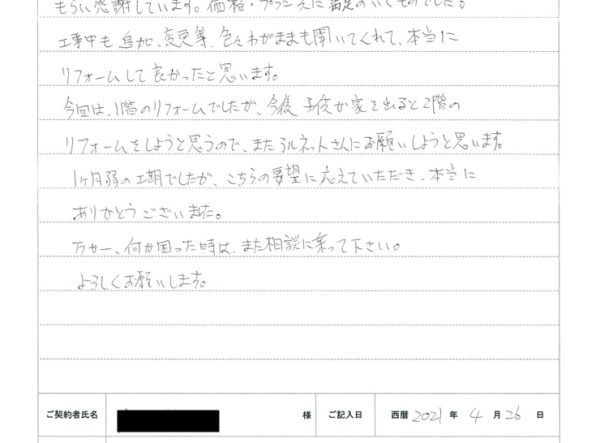 もらい感謝しています。価格・プランともに満足のいくものでした。
工事中も追加、変更等、色々わがままも聞いてくれて、本当に
リフォームして良かったと思います。
今回は、1階のリフォームでしたが、今後子供が家を出ると2階の
リフォームをしようと思うので、またルネットさんにお願いしようと思います。
1ヶ月弱の工期でしたが、こちらの要望に応えていただき、本当に
ありがとうございました。
万が一、何か困った時は、また相談に乗って下さい。
よろしくお願いします。
ご契約者氏名 様 ご記入日 西暦 2021 年 4 月 26 日